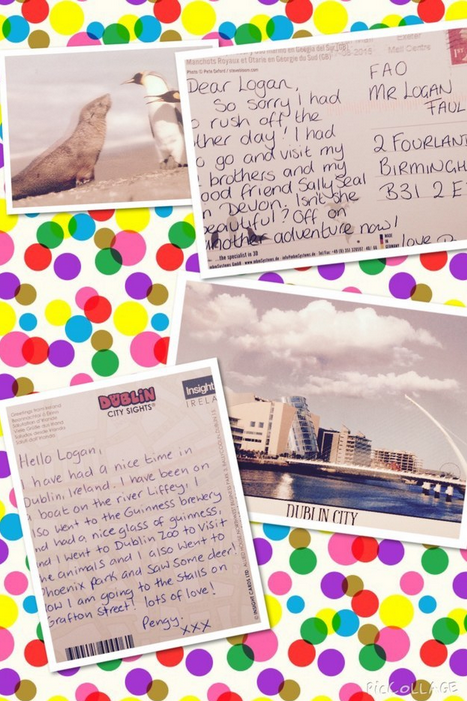 Manchots Royaux et Otarie en Georgie du Sud (GB)
Dear Logan,
So sorry I had
rush off the
ther day! I had
go and visit my
brothers and my
ood friend Sally Seal
Devon. Isn't she
beautiful? Off on
another adventure now!
love
FAO
MR LOGAN
FAUL
2 FOURLAN
BIRMINGH
B31 2E
...the specialist in 3D
DUBLIN
CITY SIGHTS
Insight
IRELA
Hello Logan,
I have had a nice time in
Dublin, Ireland. I have been on
a boat on the river Liffey, I
also went to the Guinness brewery
and had a nice glass of guinness,
and I went to Dublin Zoo to visit
the animals and I also went to
Phoenix Park and saw some deer!
Now I am going to the stalls on
Grafton street! lots of love!
Pengy! xxx
© INSIGHT CARDS LTD
DUBLIN CITY
PicCOLLAGE